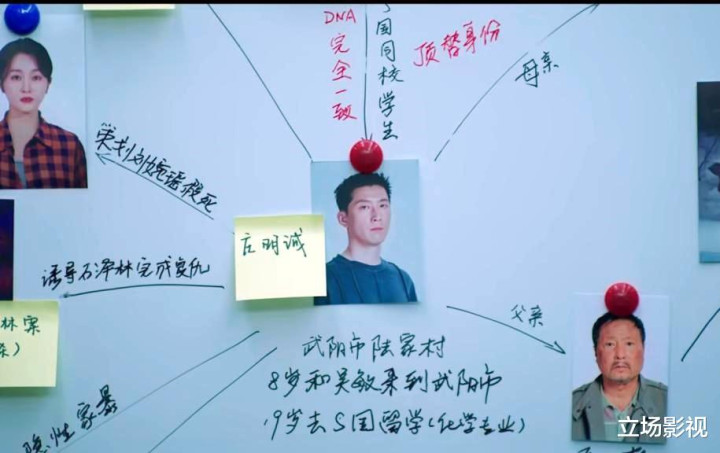 DNA
完全一致
国同校学生
顶替身份
母亲
庄明诚
诱导石泽林完成复仇
林案
父亲
武阳市陆家村
8岁和吴敏来到武阳市
19岁去S国留学(化学专业)
隐性家暴
立场影视